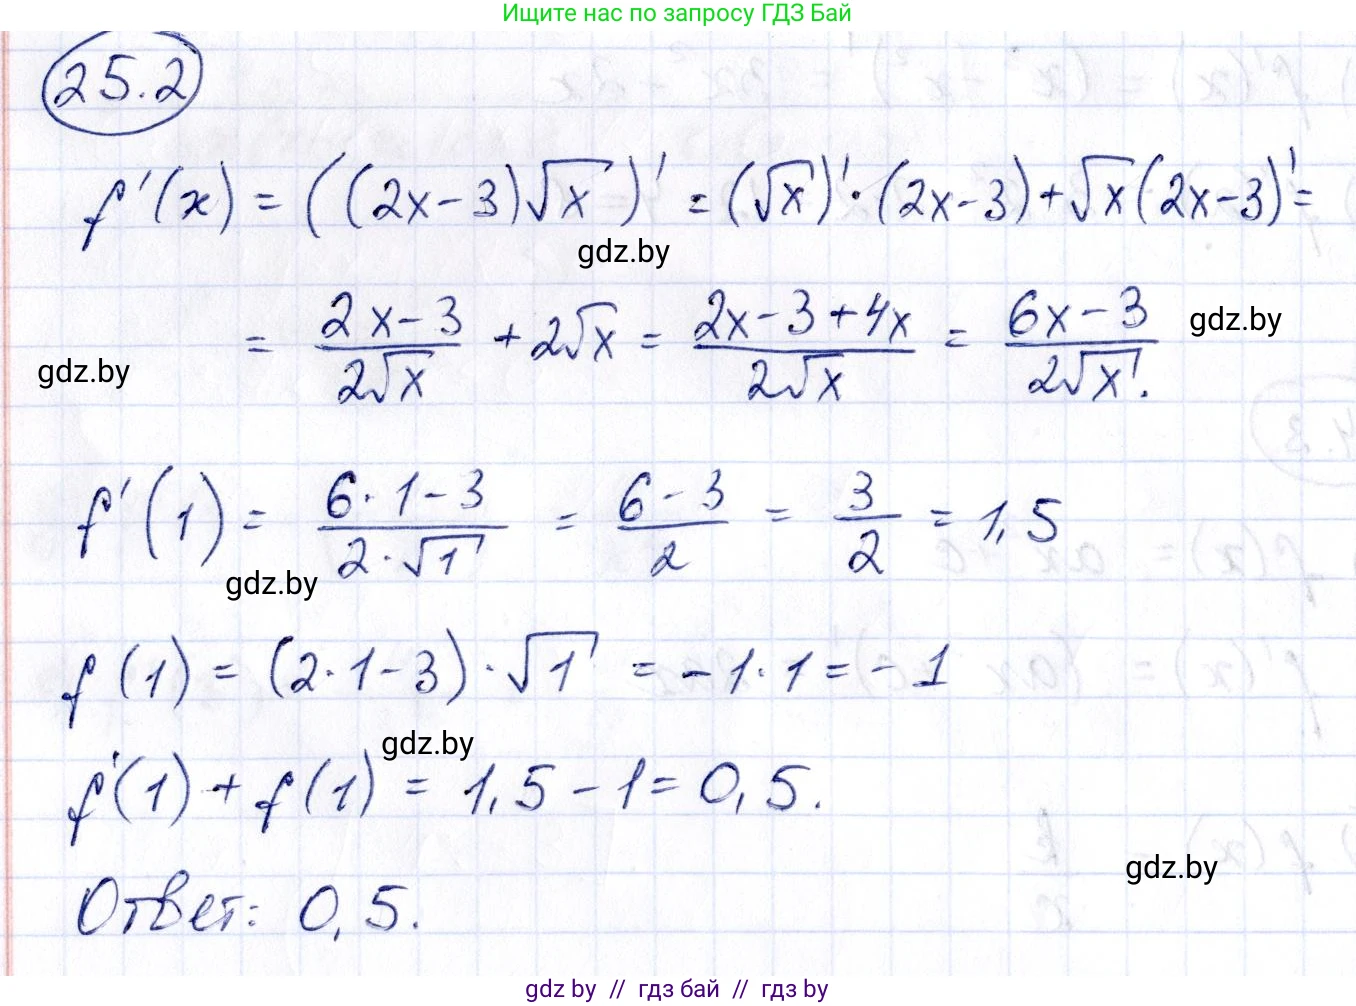 Ищите нас по запросу ГДЗ Бай
25.2
f'(x) = ((2x-3)√x)' = (√x)'·(2x-3)+√x(2x-3)'=
gdz.by
= (2x-3)/(2√x) + 2√x = (2x-3+4x)/(2√x) = (6x-3)/(2√x).
gdz.by
gdz.by
f'(1) = (6·1-3)/(2·√1) = (6-3)/2 = 3/2 = 1,5
gdz.by
f(1) = (2·1-3)·√1 = -1·1 = -1
gdz.by
f'(1) + f(1) = 1,5 - 1 = 0,5.
gdz.by
Ответ: 0,5.
gdz.by // гдз бай // гдз by